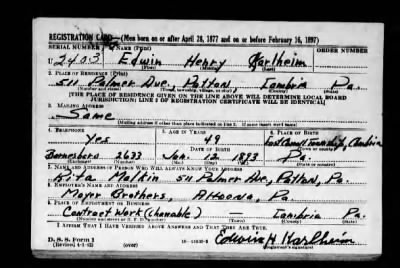 REGISTRATION CARD—(Men born on or after April 28, 1877 and on or before February 16, 1897)
SERIAL NUMBER 1. NAME (Print) ORDER NUMBER
U 2403 Edwin Henry Karlheim
(First) (Middle) (Last)
2. PLACE OF RESIDENCE (Print)
511 Palmer Ave., Patton, Cambria Pa.
(Number and street) (Town, township, village, or city) (County) (State)
[THE PLACE OF RESIDENCE GIVEN ON THE LINE ABOVE WILL DETERMINE LOCAL BOARD
JURISDICTION; LINE 2 OF REGISTRATION CERTIFICATE WILL BE IDENTICAL]
3. MAILING ADDRESS
Same
[Mailing address if other than place indicated on line 2. If same insert word same]
4. TELEPHONE 5. AGE IN YEARS 6. PLACE OF BIRTH
Yes 49 East Carroll Township, Cambria
DATE OF BIRTH (Town or county)
Barnesboro 2633 Jan. 12 1893 Pa.
(Exchange) (Number) (Mo.) (Day) (Yr.) (State or country)
7. NAME AND ADDRESS OF PERSON WHO WILL ALWAYS KNOW YOUR ADDRESS
Rita Malkin 511 Palmer Ave, Patton, Pa.
8. EMPLOYER'S NAME AND ADDRESS
Moyer Brothers, Altoona, Pa.
9. PLACE OF EMPLOYMENT OR BUSINESS
Contract Work (Changable) — Cambria Pa.
(Number and street or R. F. D. number) (Town) (County) (State)
I AFFIRM THAT I HAVE VERIFIED ABOVE ANSWERS AND THAT THEY ARE TRUE.
D. S. S. Form 1
(Revised 4-1-42) (over) Edwin H Karlheim
(Registrant's signature)